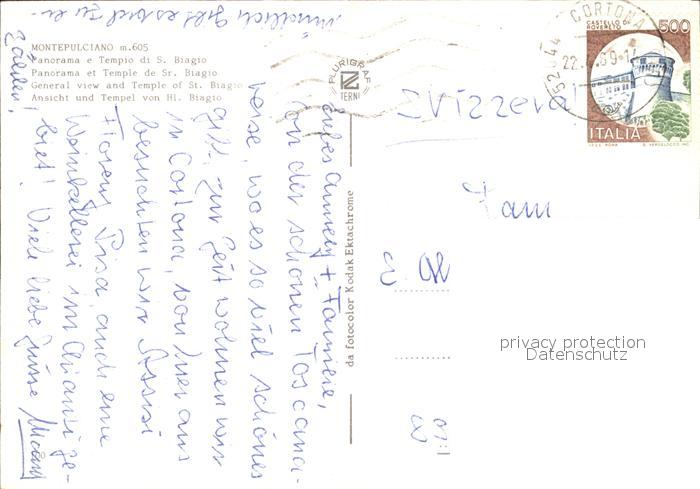 MONTEPULCIANO m.605
Panorama e Tempio di S. Biagio
Panorama et Temple de Sr. Biagio
General view and Temple of St. Biagio
Ansicht und Tempel von Hl. Biagio
PLURIGRAF
TERNI
da fotocolor Kodak Ektachrome
52044 CORTONA
22.
CASTELLO DI
ROVERETO
500
ITALIA
I.P.Z.S. ROMA
Svizzera
Fam
privacy protection
Datenschutz
Liebes + Familie,
Von der schönen Toscana-
reise, wo es so viel schönes
gibt. Zur Zeit wohnen wir
in Cortona, von hier aus
besuchten wir Assisi
Florenz, Pisa, auch eine
Weinkellerei im Chianti ge-
biet! Viele liebe Grüsse
mündlich gibt es viel zu er-
zählen!